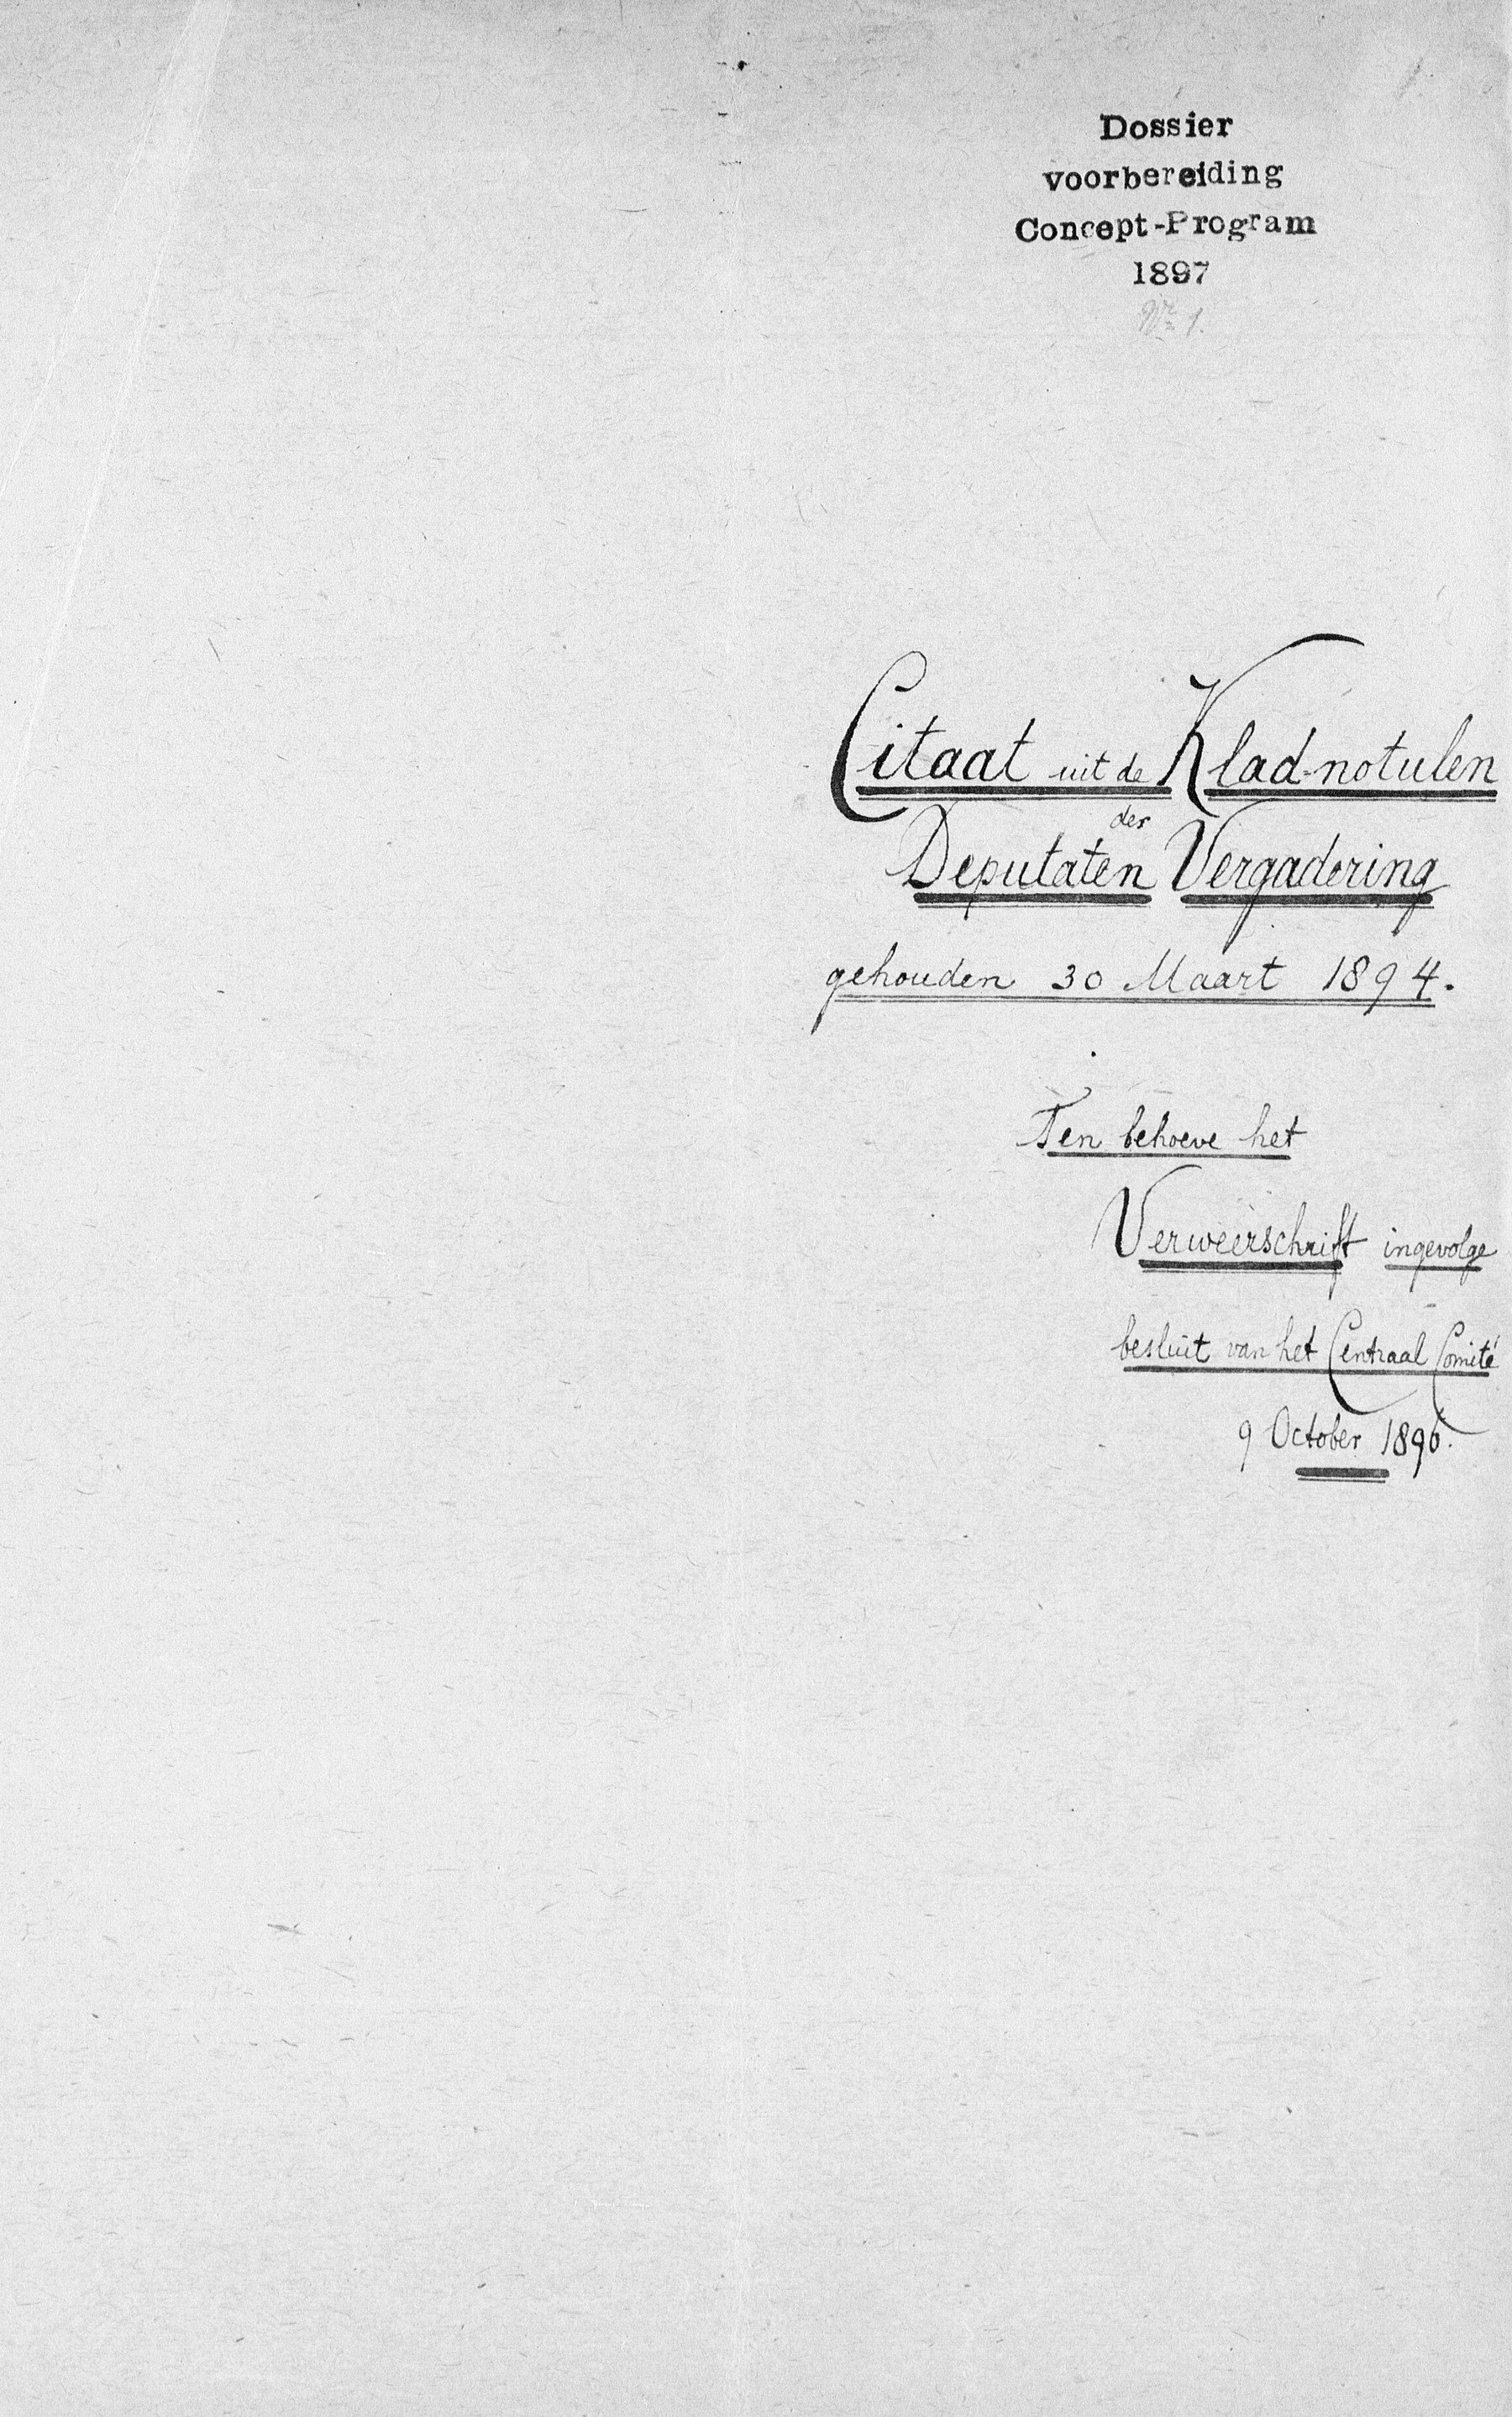 Dossier
voorbereiding
Concept-Program
1897
No 1.
Citaat uit de Klad-notulen
der
Deputaten Vergadering
gehouden 30 Maart 1894.
Ten behoeve het
Verweerschrift ingevolge
besluit van het Centraal Comité
9 October 1896.